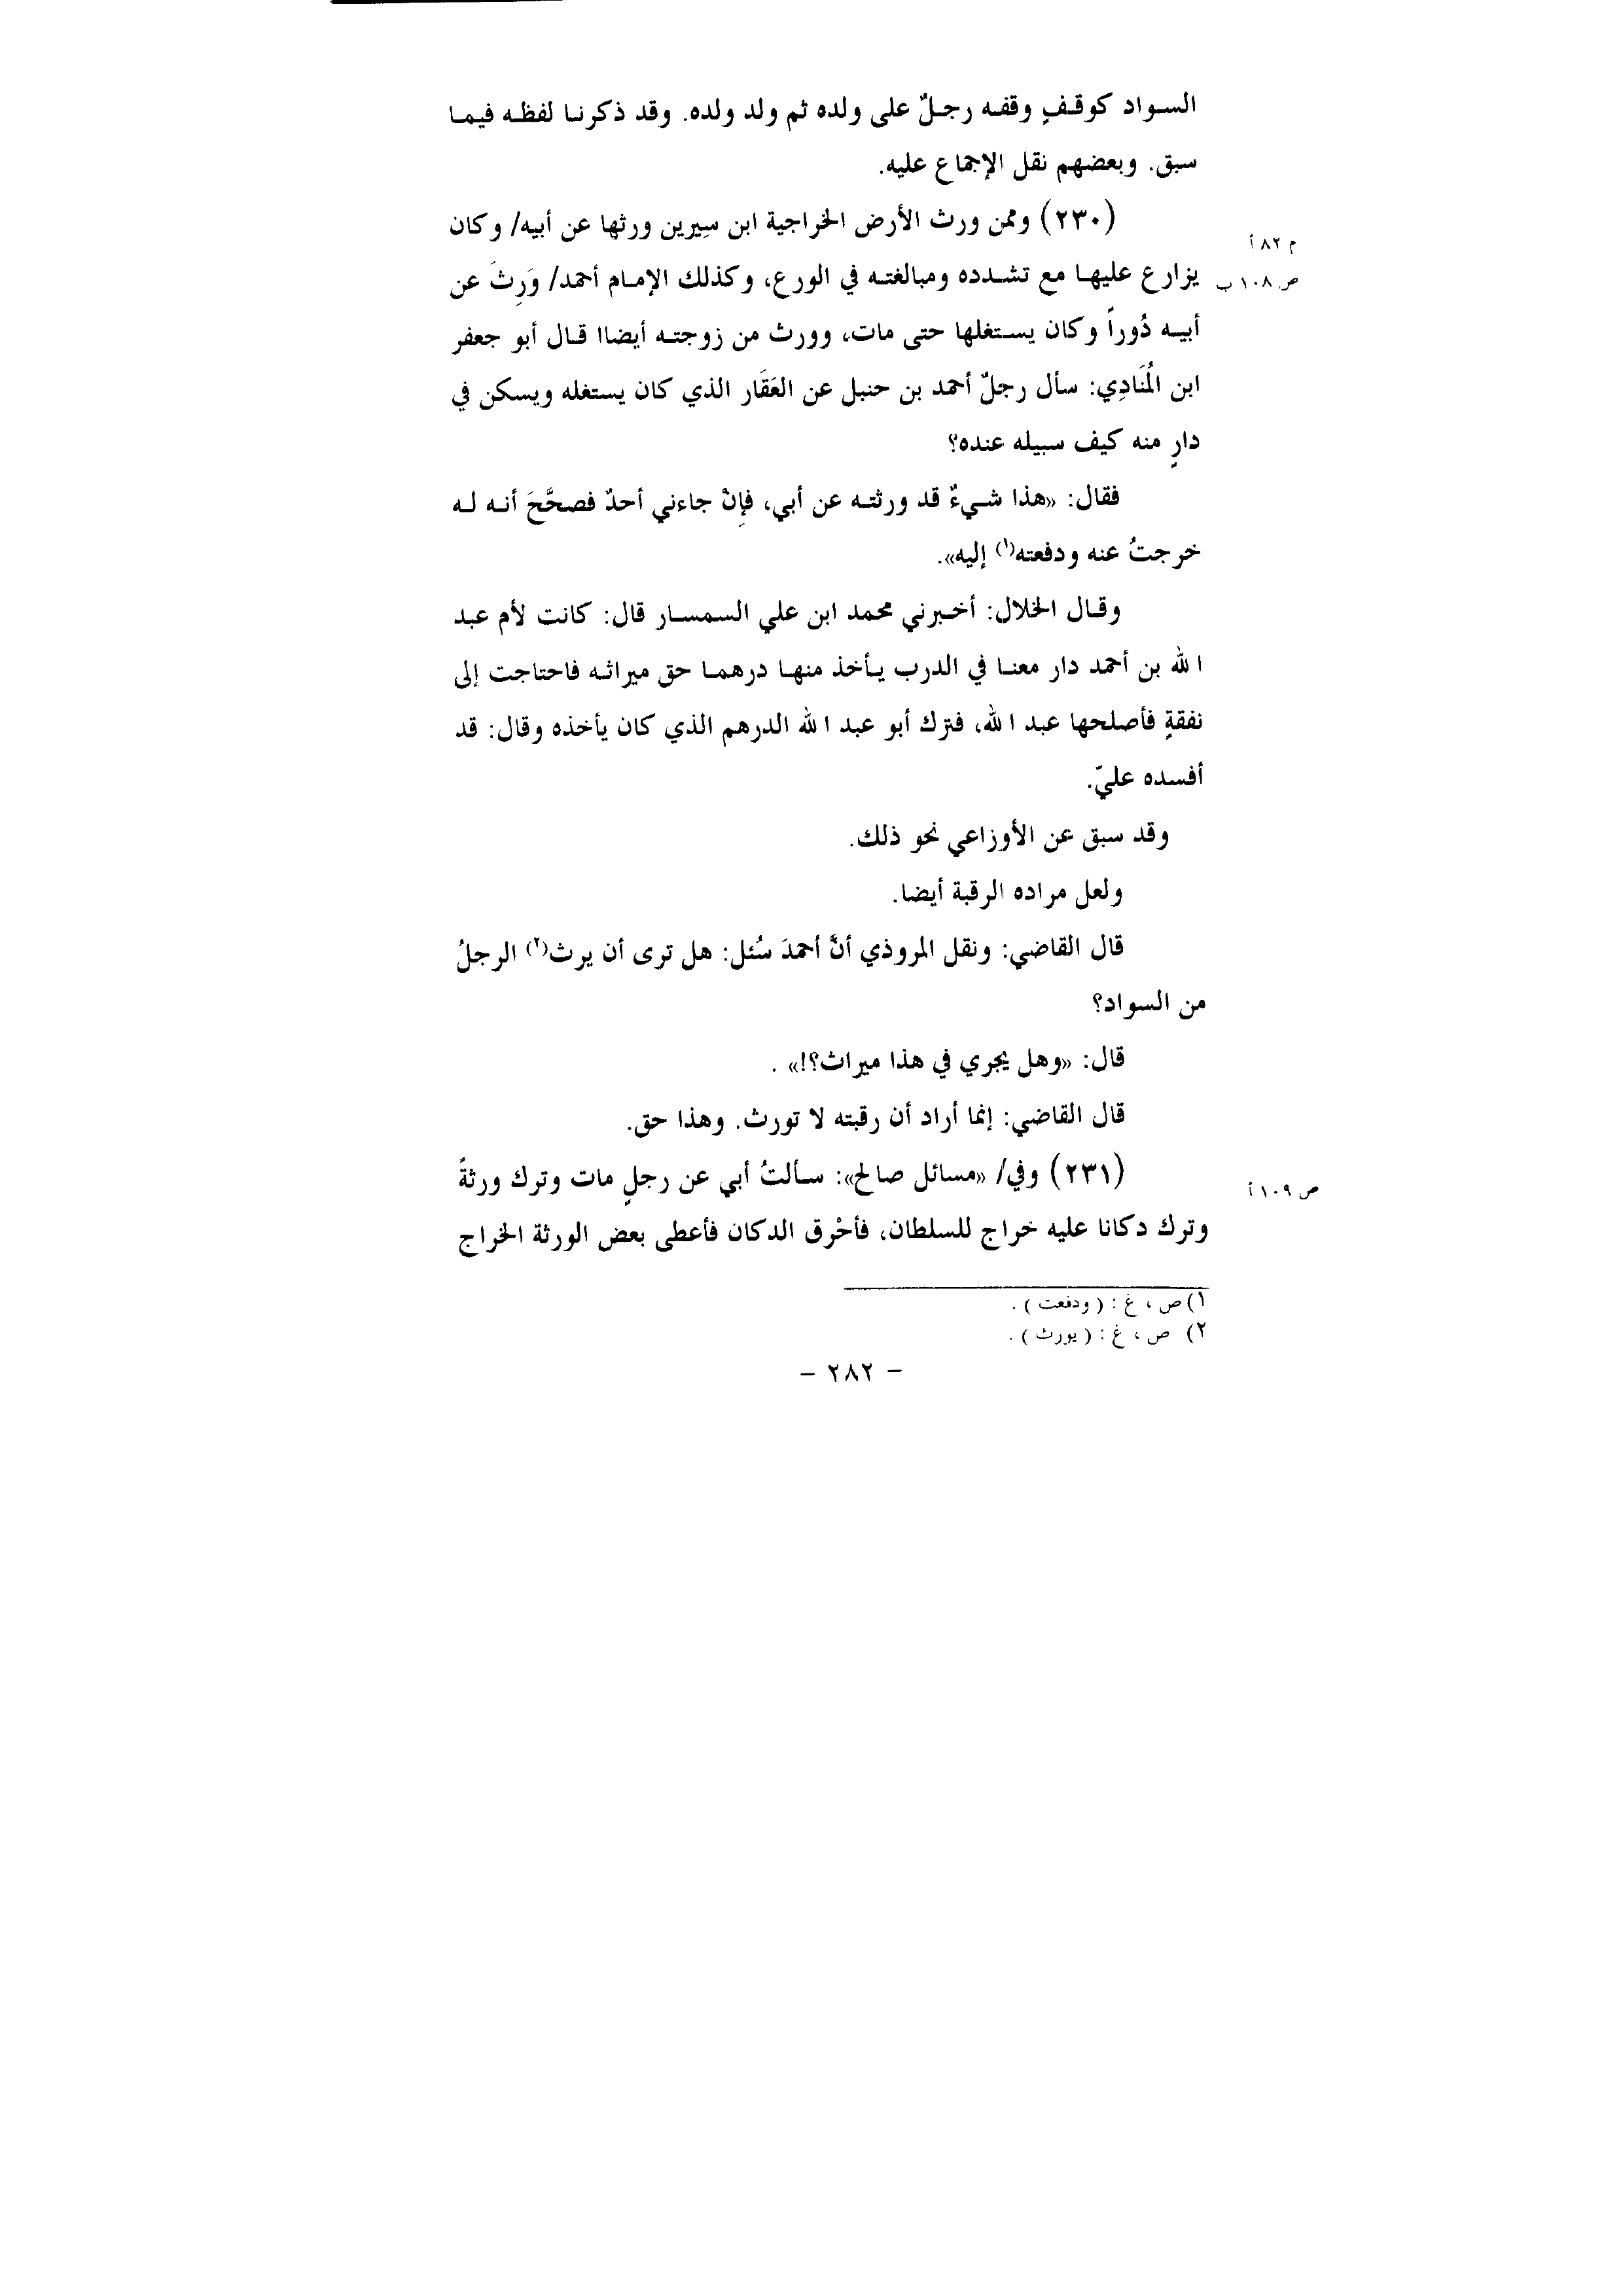 السواد كوقفٍ وقفه رجلٌ على ولده ثم ولد ولده. وقد ذكرنا لفظه فيما
سبق. وبعضهم نقل الإجماع عليه.
(٢٣٠) وممن ورث الأرض الخراجية ابن سِيرين ورثها عن أبيه/ وكان
م ٨٢ أ
يزارع عليها مع تشدده ومبالغته في الورع، وكذلك الإمام أحمد/ وَرِثَ عن
ص ١٠٨ ب
أبيه دُوراً وكان يستغلها حتى مات، وورث من زوجته أيضاا قال أبو جعفر
ابن المُنَادِي: سأل رجلٌ أحمد بن حنبل عن العَقَار الذي كان يستغله ويسكن في
دارٍ منه كيف سبيله عنده؟
فقال: «هذا شيءٌ قد ورثته عن أبي، فإِنْ جاءني أحدٌ فصحَّحَ أنه له
خرجتُ عنه ودفعته(١) إليه».
وقال الخلال: أخبرني محمد ابن علي السمسار قال: كانت لأم عبد
الله بن أحمد دار معنا في الدرب يأخذ منها درهما حق ميراثه فاحتاجت إلى
نفقةٍ فأصلحها عبد الله، فترك أبو عبد الله الدرهم الذي كان يأخذه وقال: قد
أفسده عليّ.
وقد سبق عن الأوزاعي نحو ذلك.
ولعل مراده الرقبة أيضا.
قال القاضي: ونقل المروذي أنَّ أحمدَ سُئل: هل ترى أن يرث(٢) الرجلُ
من السواد؟
قال: «وهل يجري في هذا ميراث؟!» .
قال القاضي: إنما أراد أن رقبته لا تورث. وهذا حق.
(٢٣١) وفي/ «مسائل صالح»: سألتُ أبي عن رجلٍ مات وترك ورثةً
ص ١٠٩ أ
وترك دكانا عليه خراج للسلطان، فأحْرق الدكان فأعطى بعض الورثة الخراج
١) ص ، غ : ( ودفعت ) .
٢) ص ، غ : ( يورث ) .
- ٢٨٢ -